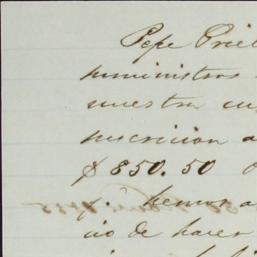 Pepe Priet
suministros
nuestra cu
suscricion a
$850.50
p.ª hemos a
cio de hacer